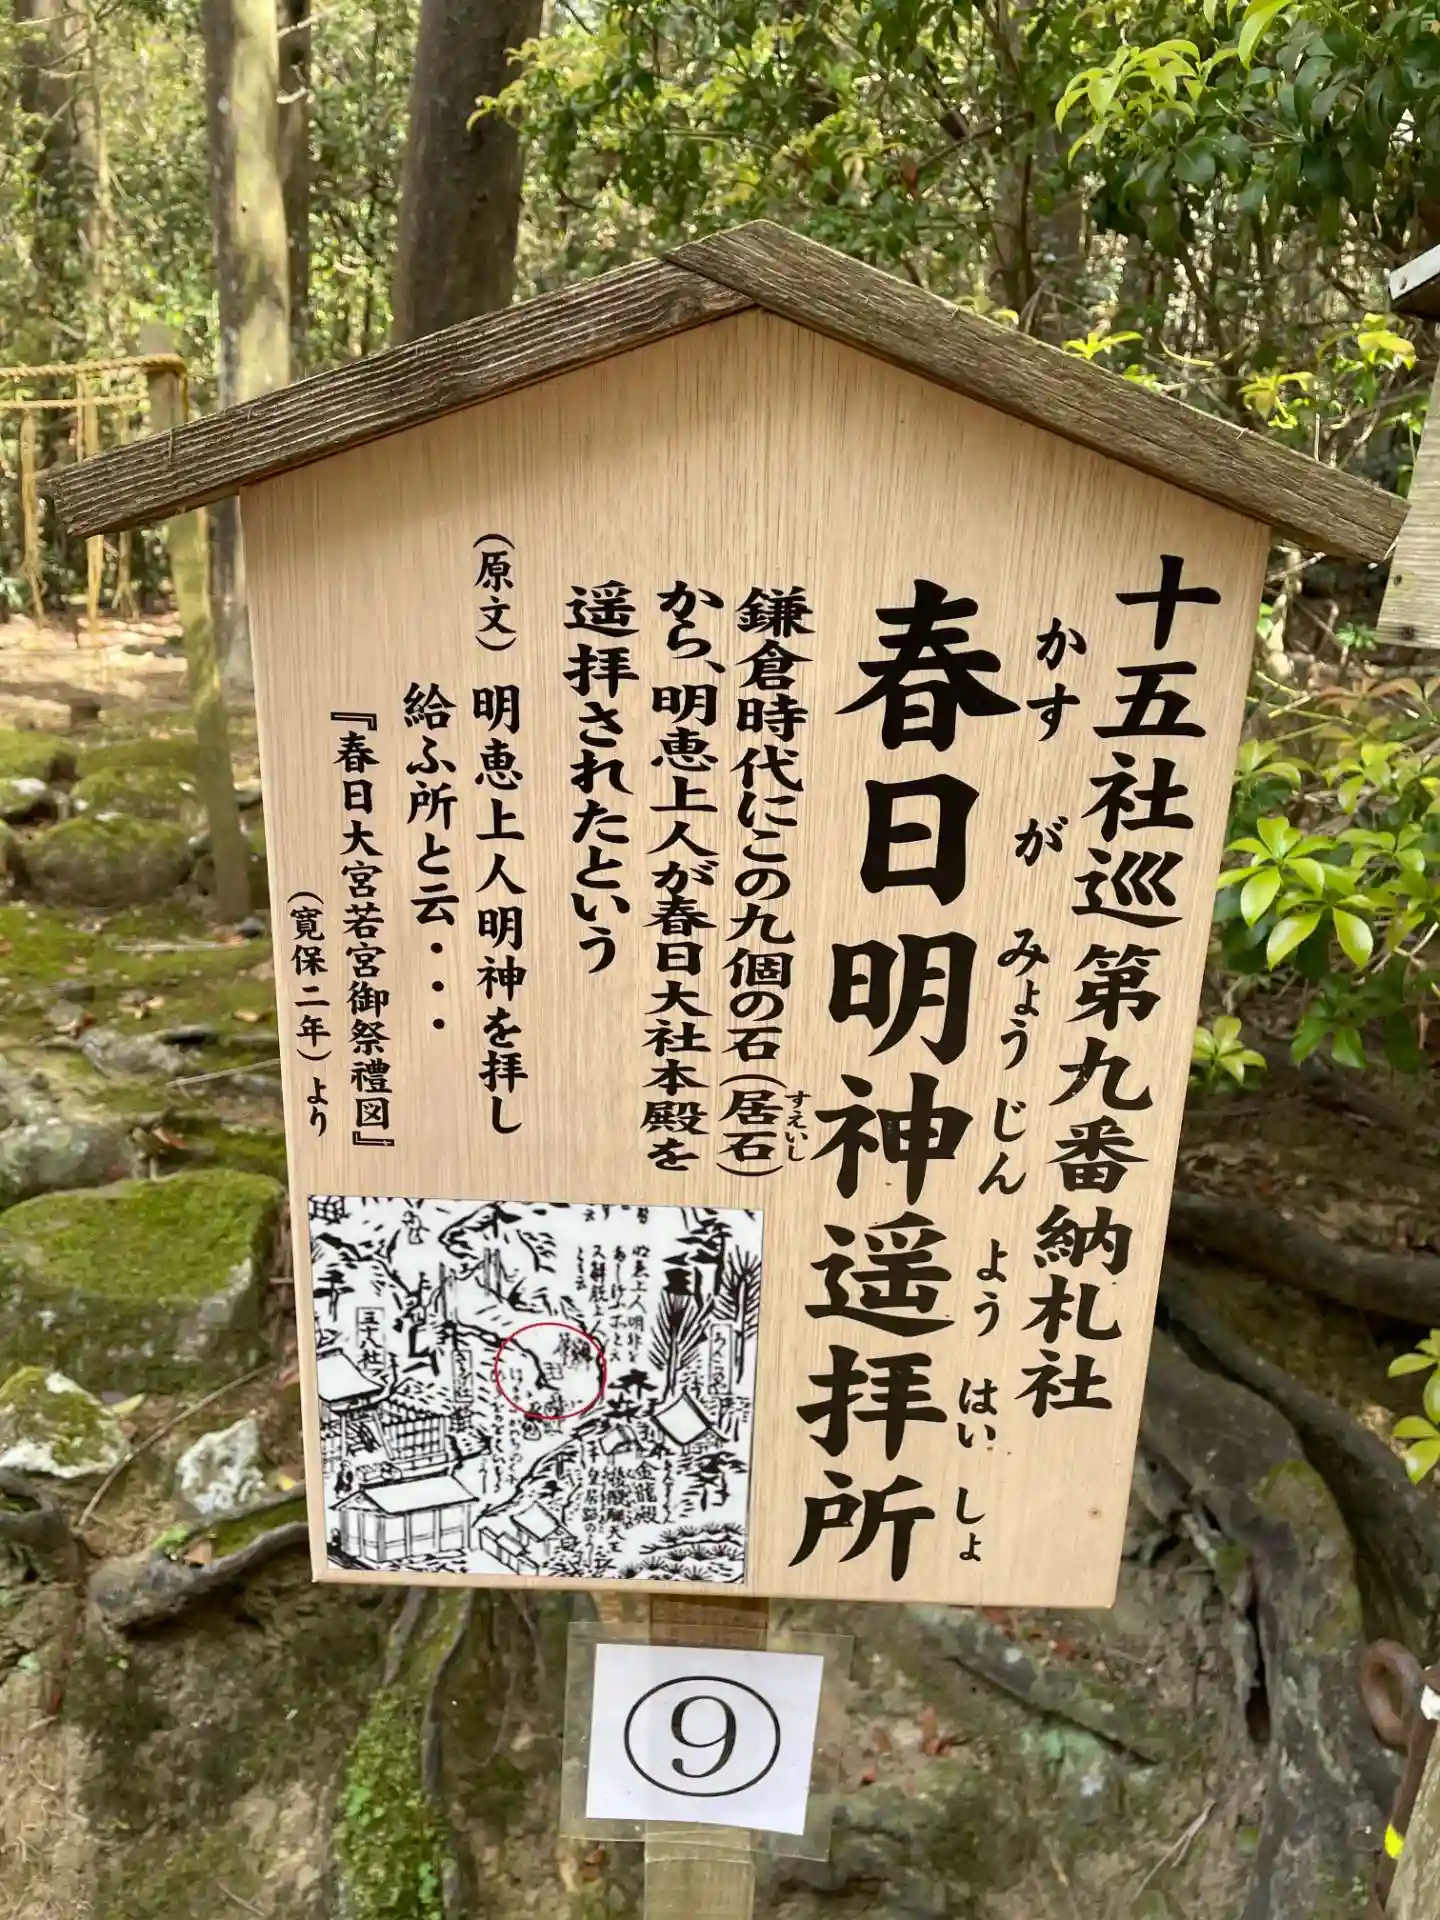 十五社巡 第九番納札社
春日明神遥拝所
かすが みょうじん ようはいしょ
鎌倉時代にこの九個の石(居石)
すえいし
から、明恵上人が春日大社本殿を
遥拝されたという
(原文) 明恵上人明神を拝し
給ふ所と云・・・
『春日大宮若宮御祭禮図』
(寛保二年)より
三十八社
金龍殿
⑨